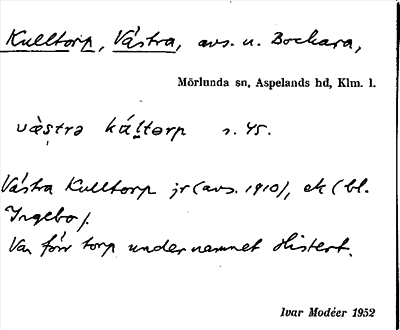 Kulltorp, Västra, avs. u. Bockara,
Mörlunda sn, Aspelands hd, Klm. l.
s. 45.
Västra Kulltorp jr (avs. 1910), ek (bl.
Ingebo).
Var förr torp under namnet Histert.
Ivar Modéer 1952